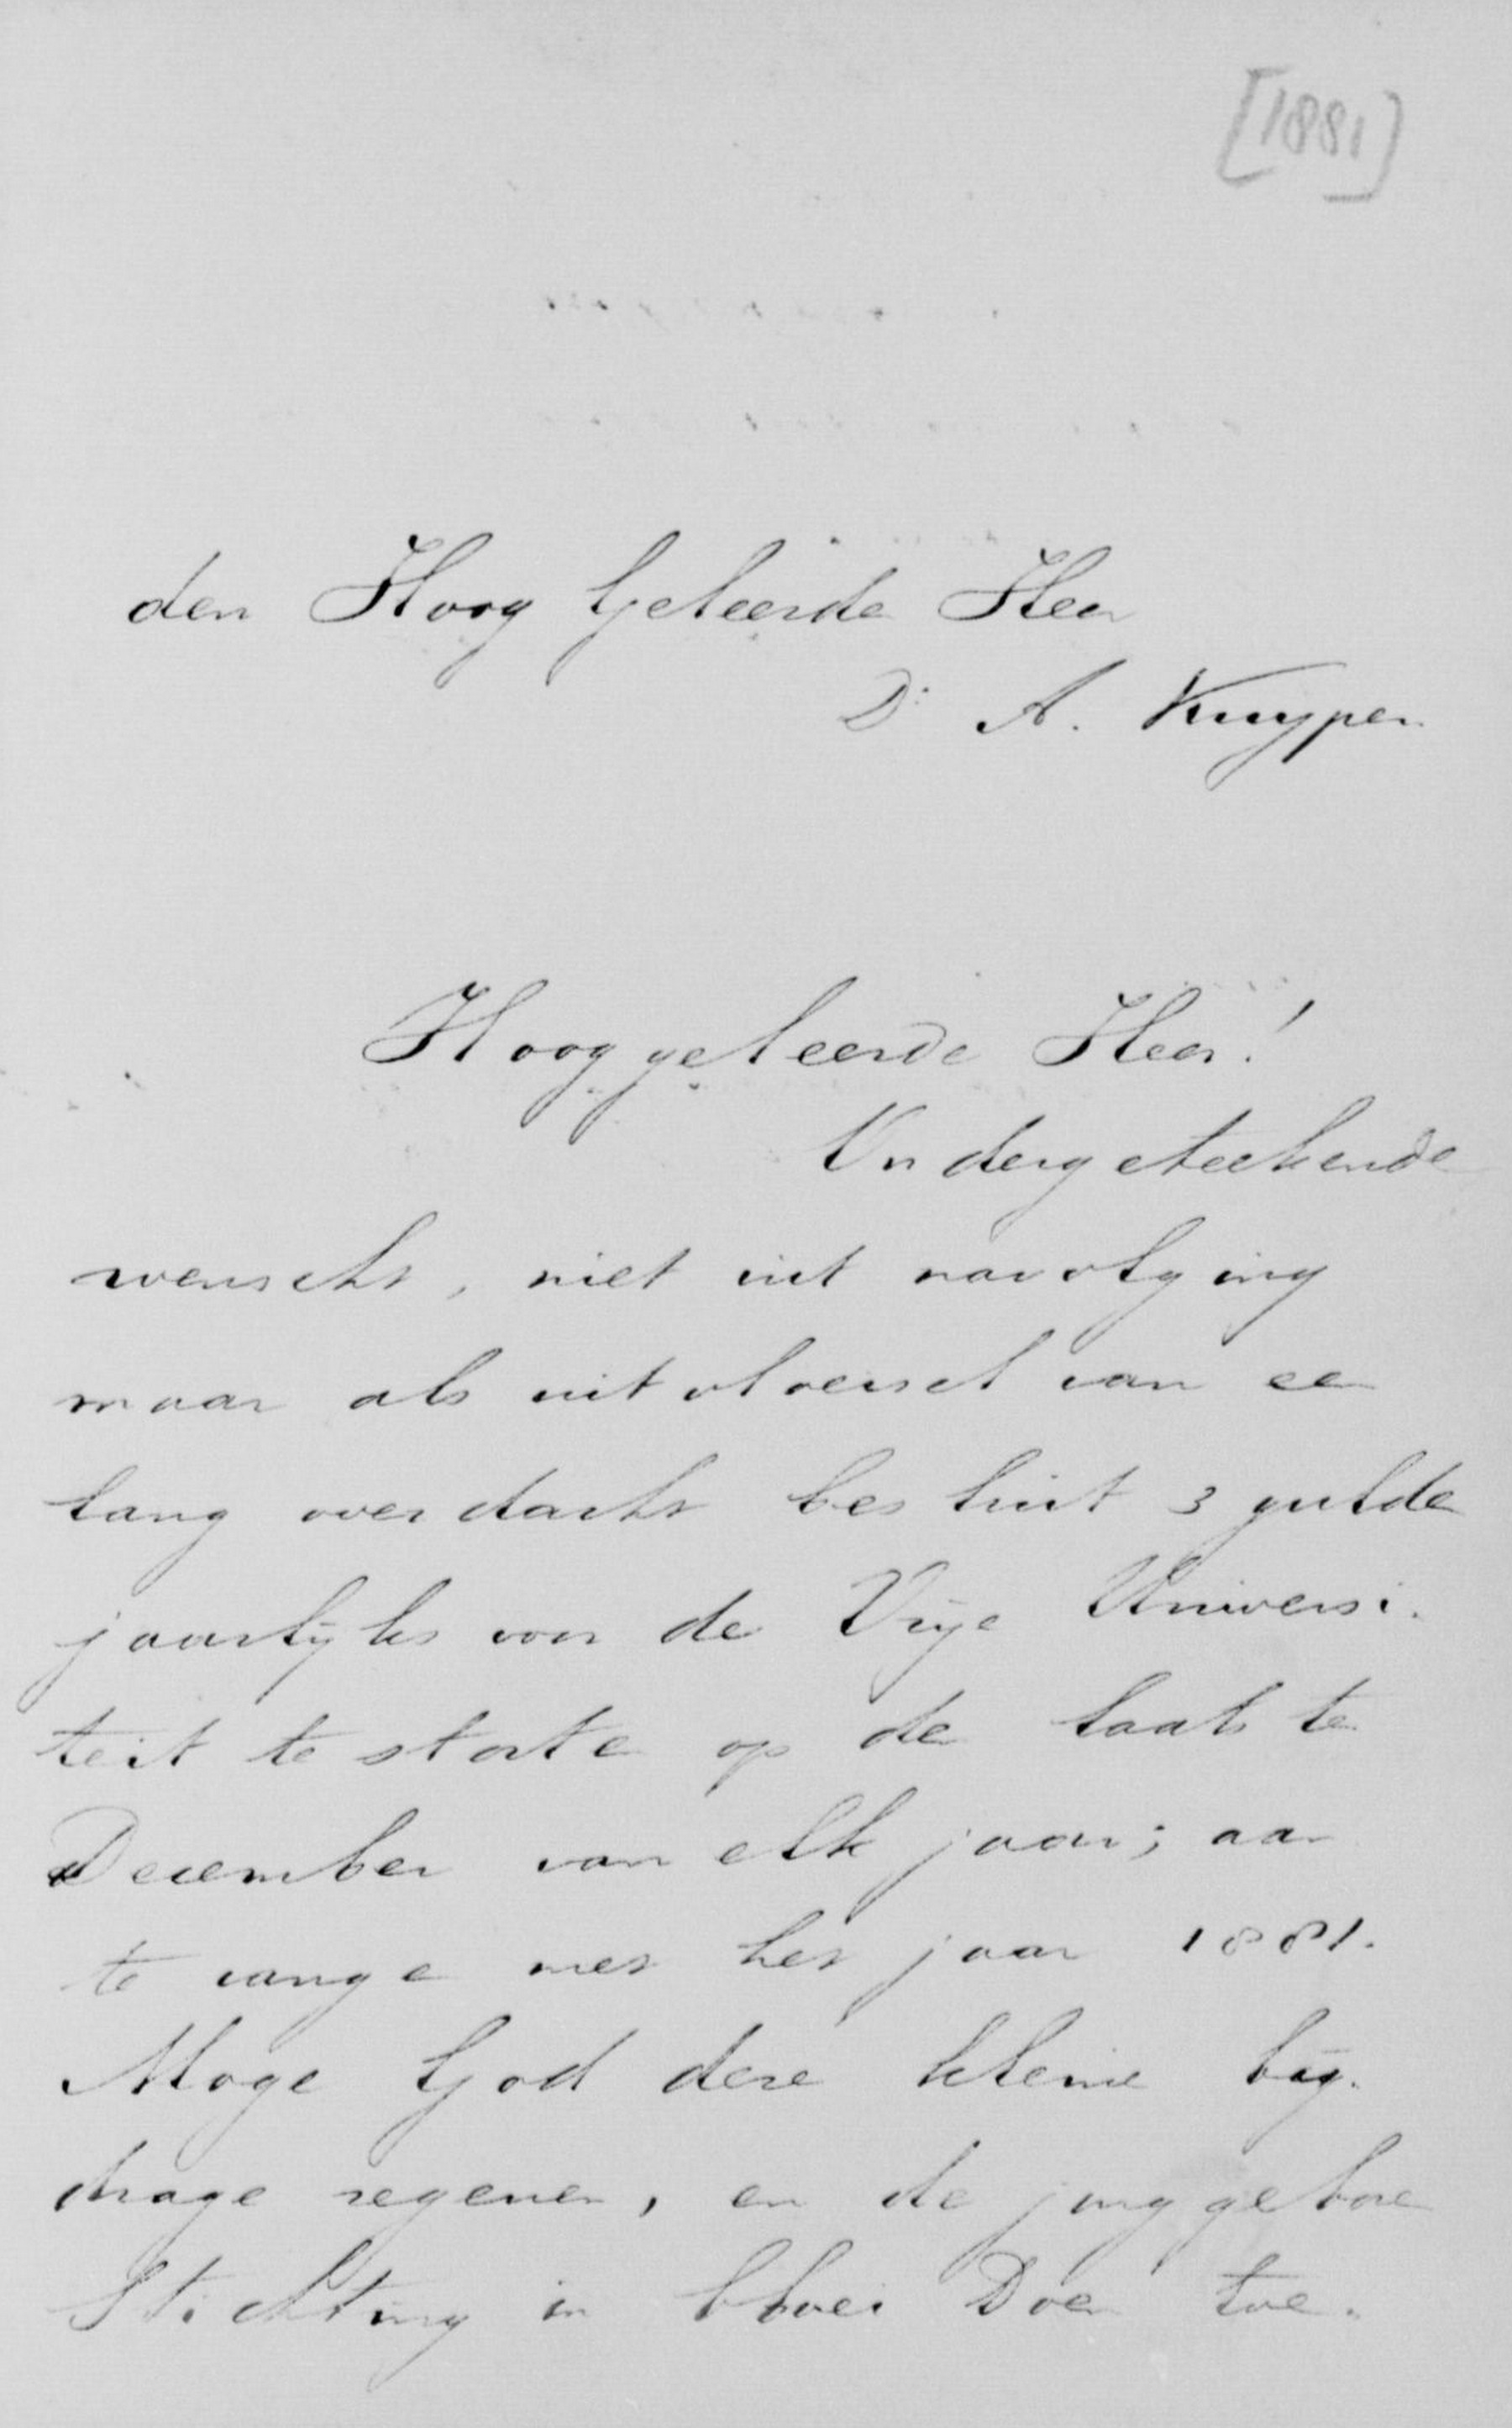 [1881]
den Hoog Geleerde Heer
Dr A. Kuyper
Hooggeleerde Heer!
Ondergeteekende
wenscht, niet uit navolging
maar als uitvloeisel van ee
lang overdacht besluit 3 gulde
jaarlijks voor de Vrije Universi-
teit te storte op de laatste
December van elk jaar; aan
te vange met het jaar 1881.
Moge God deze kleine bij-
drage zegenen, en de jonggebore
Stichting in bloei Doen toe-